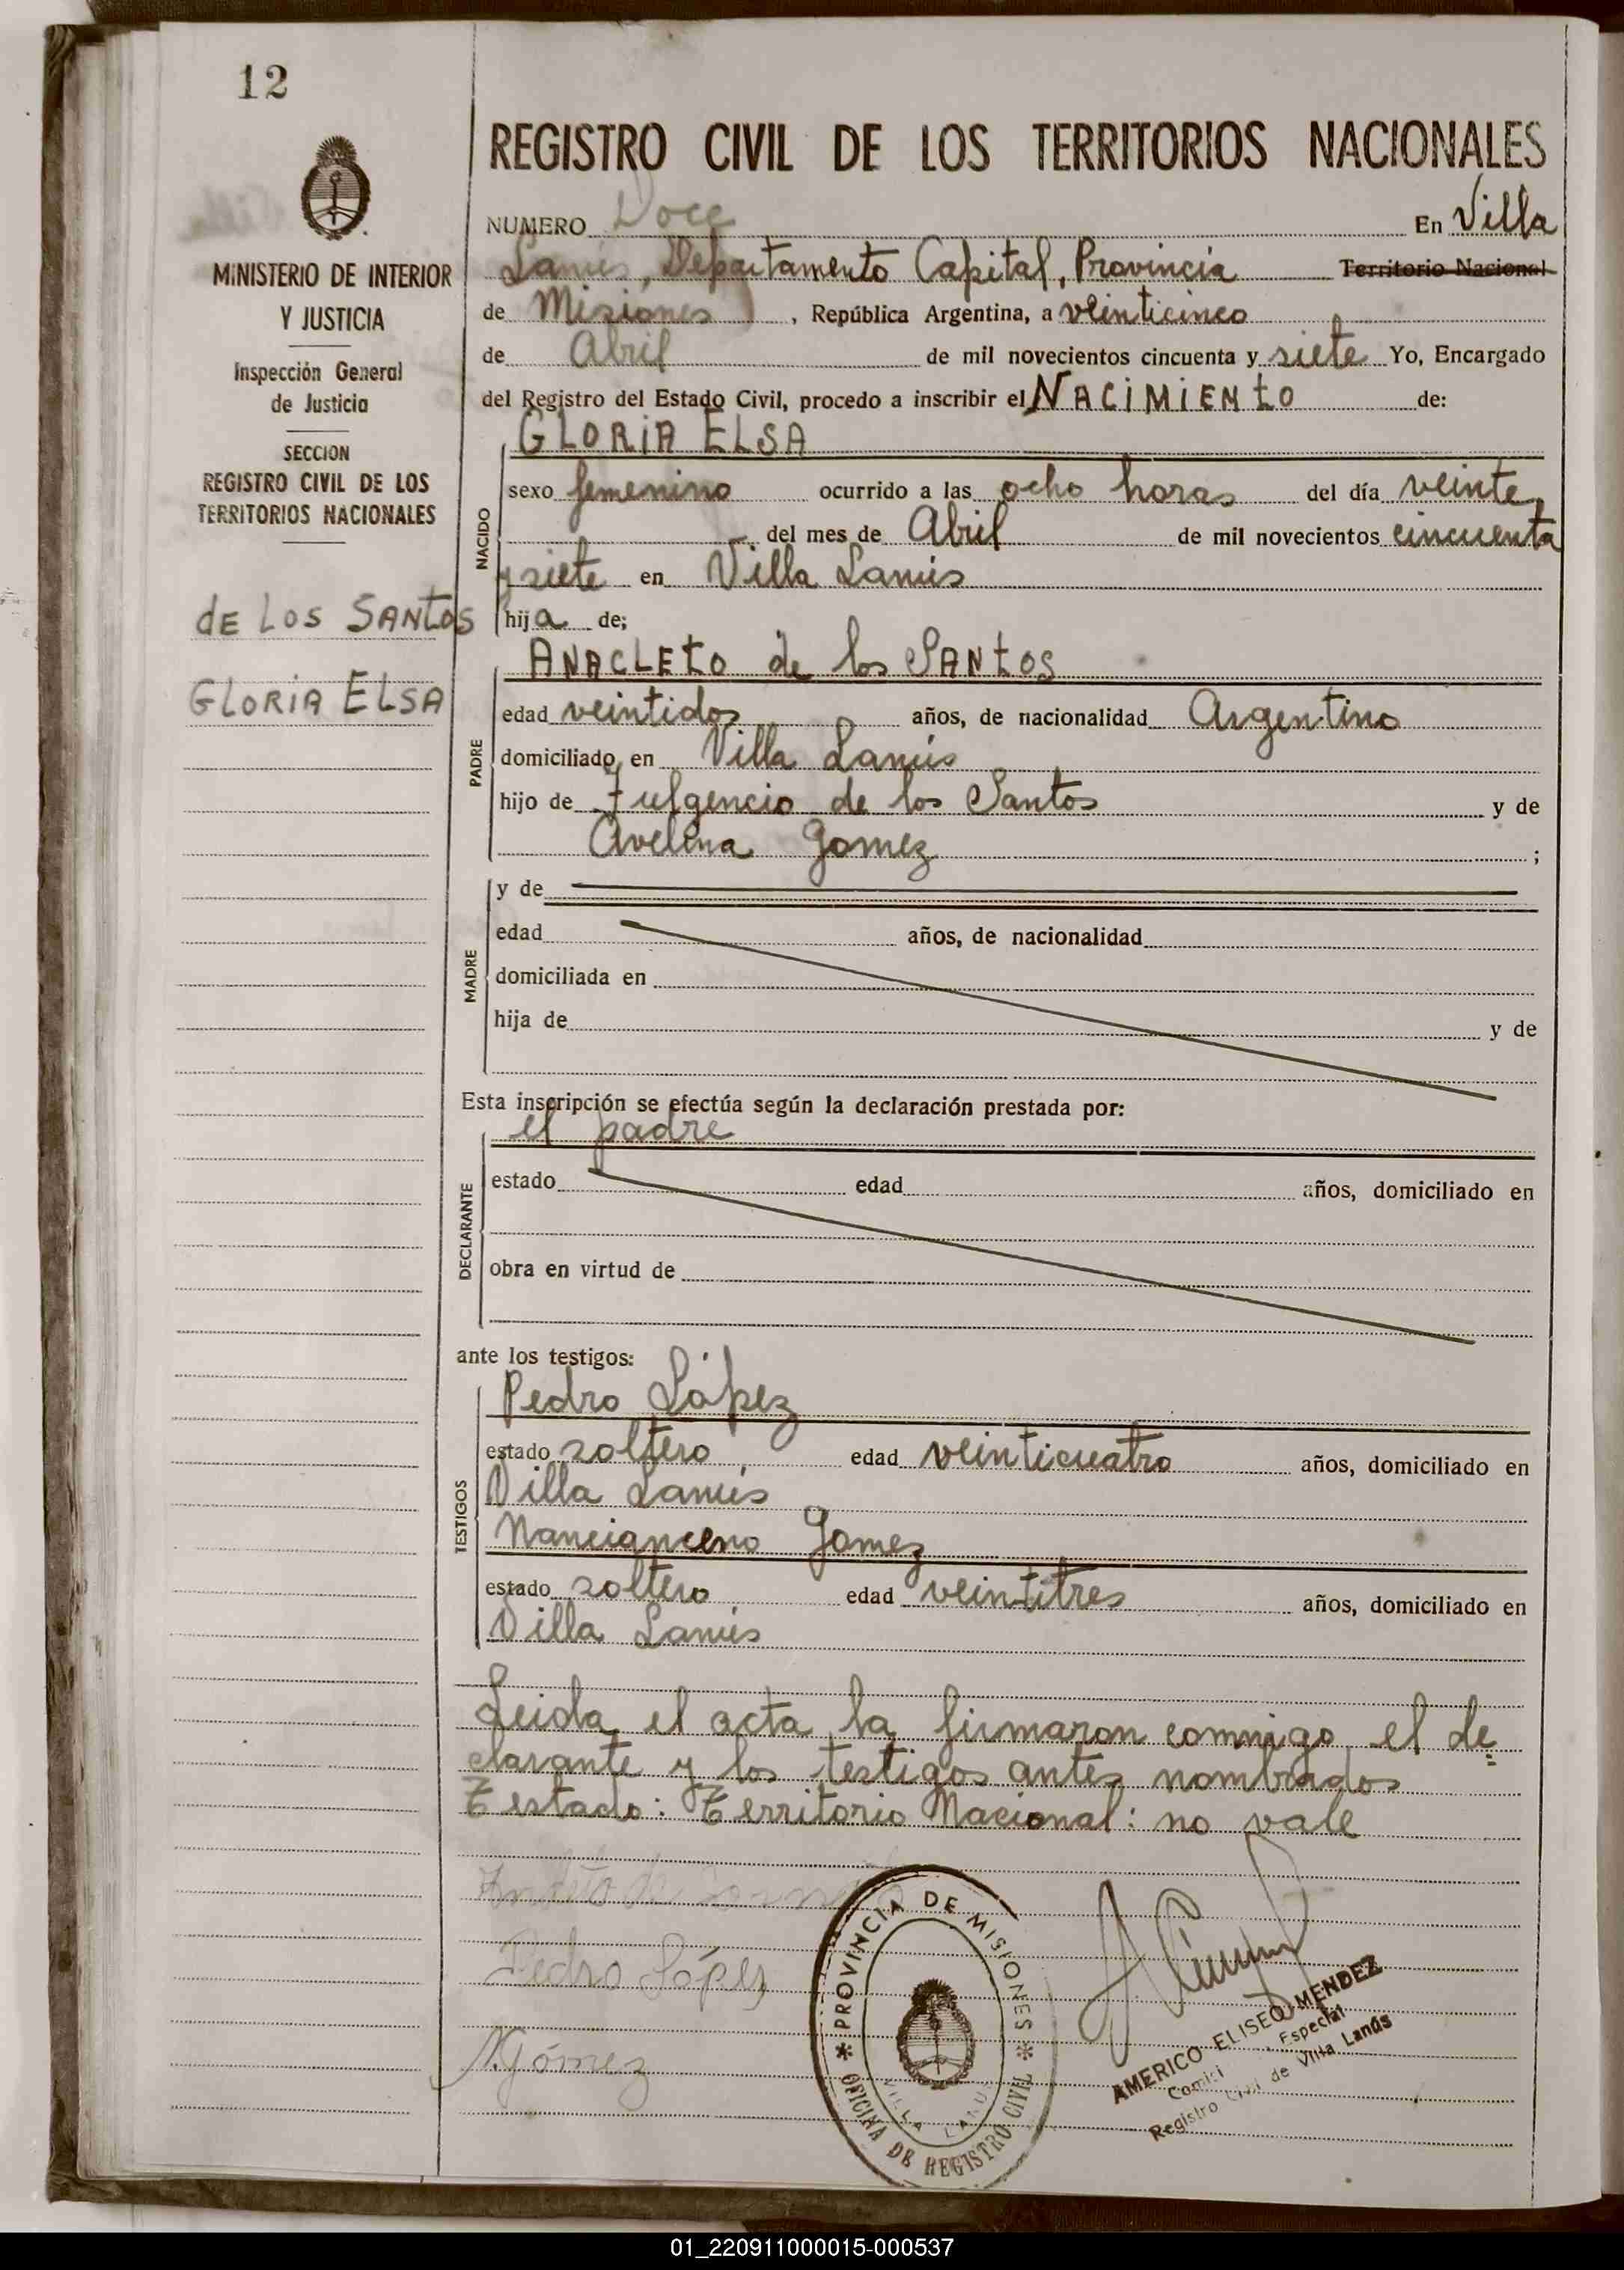 12
MINISTERIO DE INTERIOR
Y JUSTICIA
Inspección General
de Justicia
SECCION
REGISTRO CIVIL DE LOS
TERRITORIOS NACIONALES
DE LOS SANTOS
GLORIA ELSA
REGISTRO CIVIL DE LOS TERRITORIOS NACIONALES
NUMERO Doce En Villa
Lanús, Departamento Capital, Provincia Territorio Nacional
de Misiones, República Argentina, a veinticinco
de Abril de mil novecientos cincuenta y siete Yo, Encargado
del Registro del Estado Civil, procedo a inscribir el NACIMIENTO de:
NACIDO
GLORIA ELSA
sexo femenino ocurrido a las ocho horas del día veinte,
del mes de Abril de mil novecientos cincuenta
y siete en Villa Lanús
hija de;
PADRE
ANACLETO de los SANTOS
edad veintidos años, de nacionalidad Argentino
domiciliado en Villa Lanús
hijo de Fulgencio de los Santos y de
Avelina Gomez ;
MADRE
y de
edad años, de nacionalidad
domiciliada en
hija de y de
Esta inscripción se efectúa según la declaración prestada por:
DECLARANTE
el padre
estado edad años, domiciliado en
obra en virtud de
ante los testigos:
TESTIGOS
Pedro López
estado soltero, edad veinticuatro años, domiciliado en
Villa Lanús
Gomez
estado soltero, edad veintitres años, domiciliado en
Villa Lanús
Leida el acta la firmaron conmigo el de=
clarante y los testigos antes nombrados
Testado: Territorio Nacional: no vale
Pedro López
N. Gómez
* PROVINCIA DE MISIONES *
OFICINA DE REGISTRO CIVIL
VILLA LANUS
AMERICO ELISEO MENDEZ
Especial
Registro Civil de Villa Lanús
01_220911000015-000537